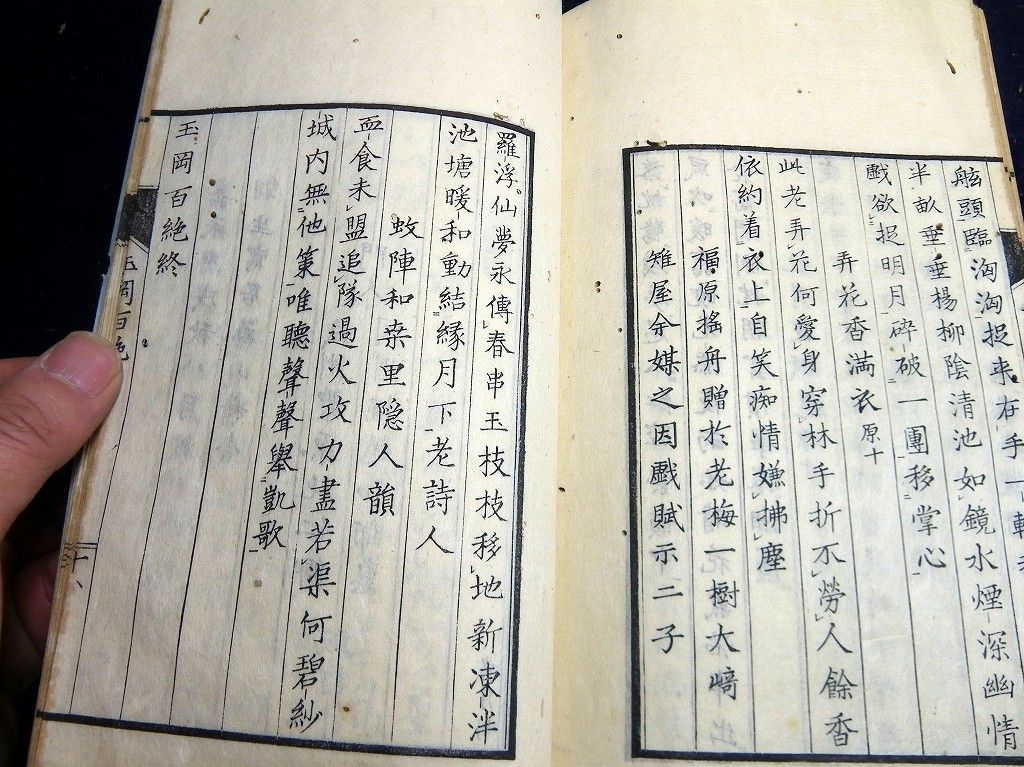 舷頭臨洶洶捉来在手一輕
半畝垂垂楊柳陰清池如鏡水煙深幽情
戲欲捉明月碎破一團移掌心
弄花香満衣原十
此老弄花何愛身穿林手折不勞人餘香
依約着衣上自笑痴情嫌拂塵
福原搖舟贈於老梅一樹大﨑
雉屋余媒之因戲賦示二子
羅浮仙夢永傳春串玉枝枝移地新凍泮
池塘暖和動結緣月下老詩人
蚊陣和桒里隠人韻
血食未盟追隊過火攻力盡若渠何碧紗
城内無他策唯聽聲聲舉凱歌
玉岡百絶終
玉岡百絶
十六